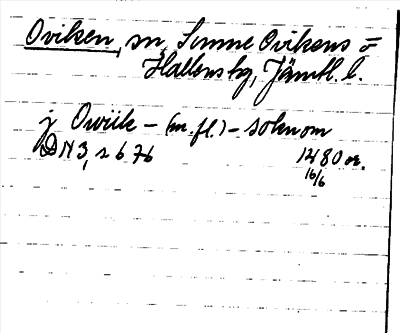 Oviken, sn, Sunne Ovikens o
Hallens tg, Jämtl. l.
j Owiik - (m.fl.) - soknom
DN 3, s 676 1480 or.
16/6